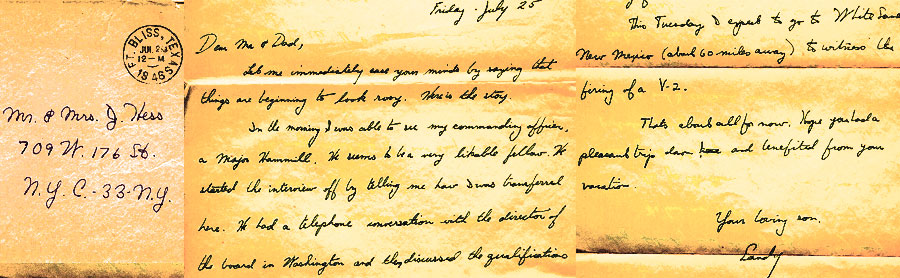 FT. BLISS, TEXAS
JUN. 2
12-M
1946
Mr. & Mrs. J. Hess
709 W. 176 St.
N.Y. C. -33- N.Y.
Friday - July 25
Dear Ma & Dad,
Let me immediately ease your minds by saying that
things are beginning to look rosy. Here is the story.
In the morning I was able to see my commanding officer,
a Major Hammill. He seems to be a very likable fellow. He
started the interview off by telling me how I was transferred
here. He had a telephone conversation with the director of
the board in Washington and they discussed the qualifications
This Tuesday I expect to go to White Sand
New Mexico (about 60 miles away) to witness the
firing of a V-2.
Thats about all for now. Hope you had a
pleasant trip down and benefited from your
vacation.
Your loving son,
Sandy